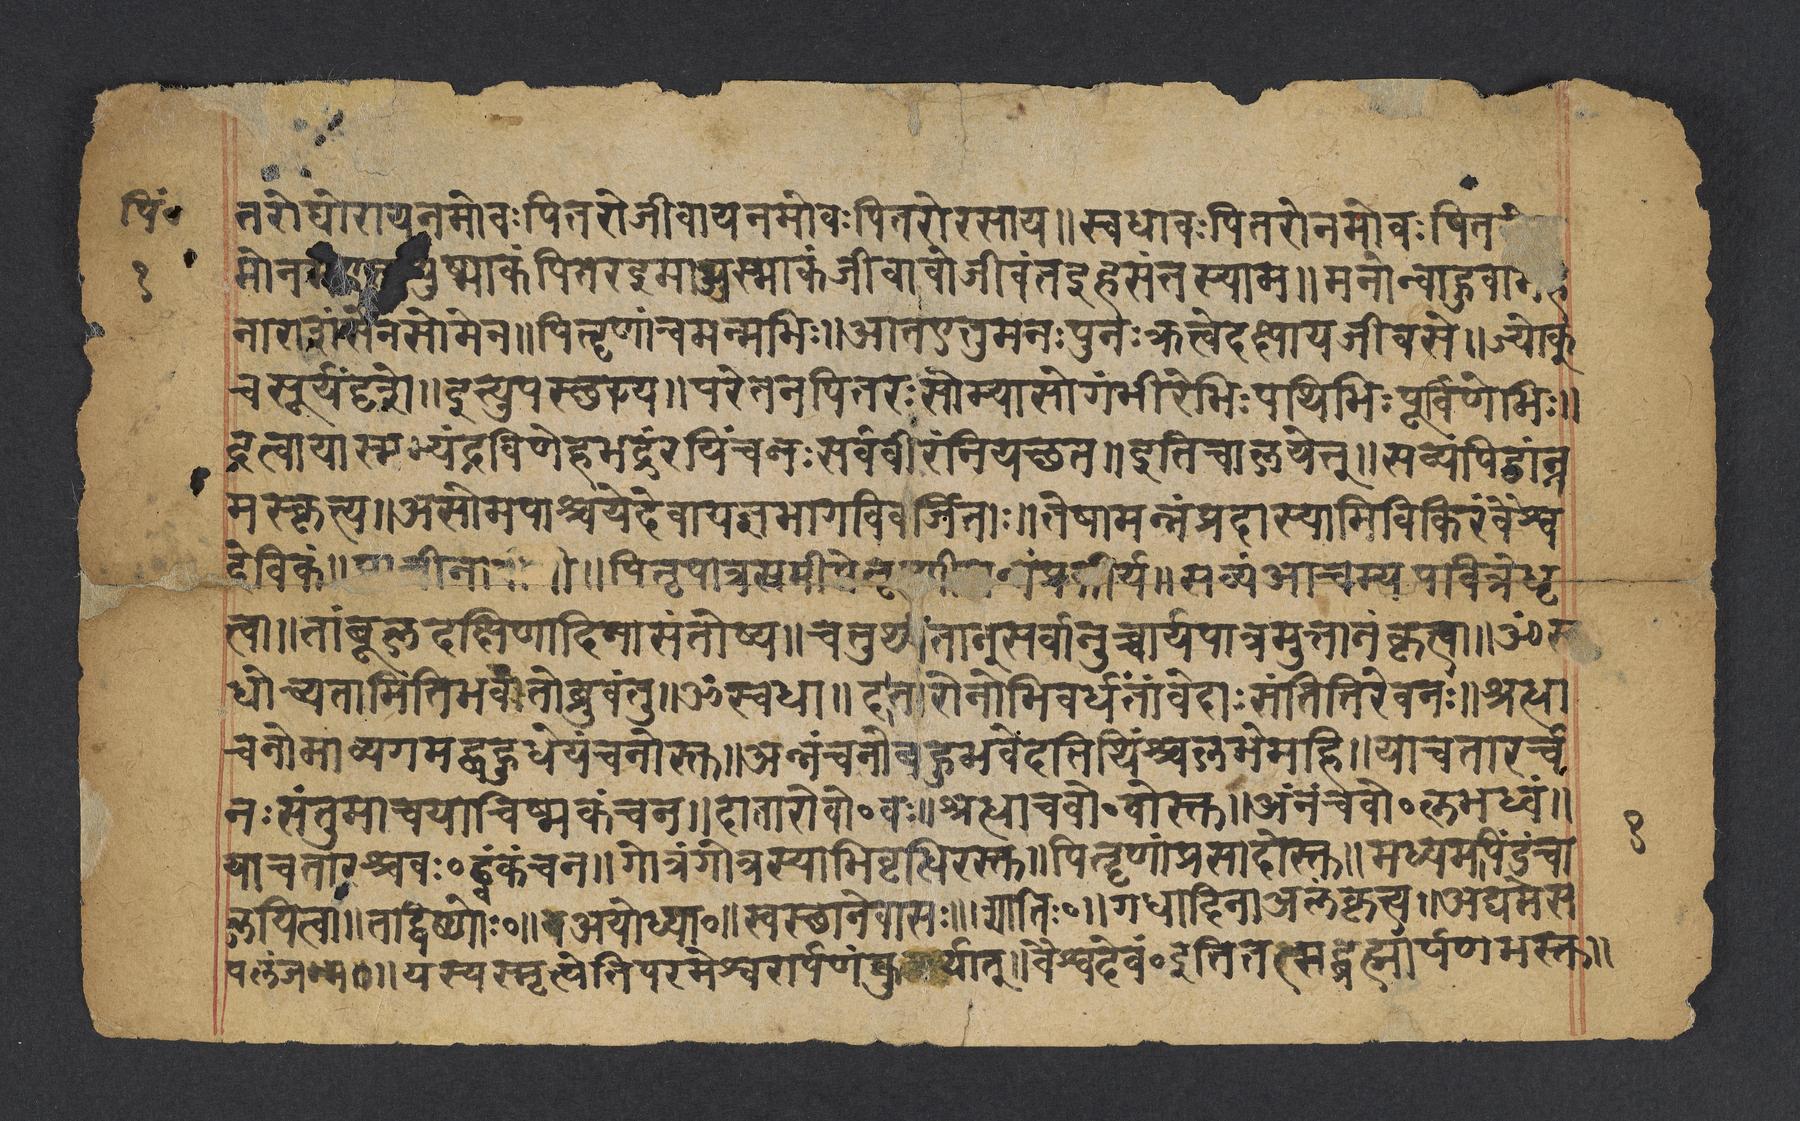 पिं॰
१
तरोघोरायनमोवःपितरोजीवायनमोवःपितरोरसाय॥स्वधावःपितरोनमोवःपित
युष्माकंपितरइमाअस्माकंजीवावोजीवंतइहसंतस्याम॥मनोन्वाहुवा
नाराशंसेनसोमेन॥पितॄणांचमन्मभिः॥आतएतुमनःपुनःक्रत्वेदक्षायजीवसे॥ज्योक्
चसूर्यंदृशे॥इत्युपस्छाय॥परेतनपितरःसोम्यासोगंभीरेभिःपथिभिःपूर्विणेभिः॥
दत्वायास्मभ्यंद्रविणेहभद्रंरयिंचनःसर्ववीरंनियछत॥इतिचालयेत्॥सव्यंपिंडांन्न
मस्कृत्य॥असोमपाश्चयेदेवायज्ञभागविवर्जिताः॥तेषामन्नंप्रदास्यामिविकिरंवैश्व
देविकं॥ ॥पितृपात्रसमीपे प्रकीर्य॥सव्यंआचम्यपवित्रेधृ
त्वा॥तांबूलदक्षिणादिनासंतोष्य॥चतुर्थ्यंतान्सर्वानुच्चार्यपात्रमुत्तानंकृत्वा॥ॐस्
धोच्यतामितिभवंतोब्रुवंतु॥ॐस्वधा॥दातारोनोभिवर्धंतांवेदाःसंततिरेवनः॥श्रत्धा
चनोमाव्यगमद्बहुधेयंचनोस्तु॥अन्नंचनोबहुभवेदतिथिंश्चलभेमहि॥याचतारश्च
नःसंतुमाचयाचिष्मकंचन॥दातारोवो॰वः॥श्रत्धाचवो॰वोस्तु॥अंनंचवो॰लभध्वं॥
याचतारश्चवः॰ढ्वंकंचन॥गोत्रंगोत्रस्याभिवृधिरस्तु॥पितॄणांप्रसादोस्तु॥मध्यमपिंडंचा
लयित्वा॥तद्विष्णोः॰॥अयोध्या॰॥स्वस्छानेवासः॥ज्ञातिः॰॥गंधादिनाअलंकृत्य॥अद्यमेस
फलंजन्म॰॥यस्यस्मृत्येतिपरमेश्वरार्पणं र्यात्॥वैश्वदेवं॰इतितत्सद्ब्रह्मार्पणमस्तु॥
१